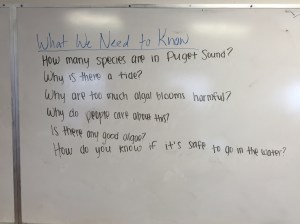 What We Need to Know
How many species are in Puget Sound?
Why is there a tide?
Why are too much algal blooms harmful?
Why do people care about this?
Is there any good algae?
How do you know if it's safe to go in the water?